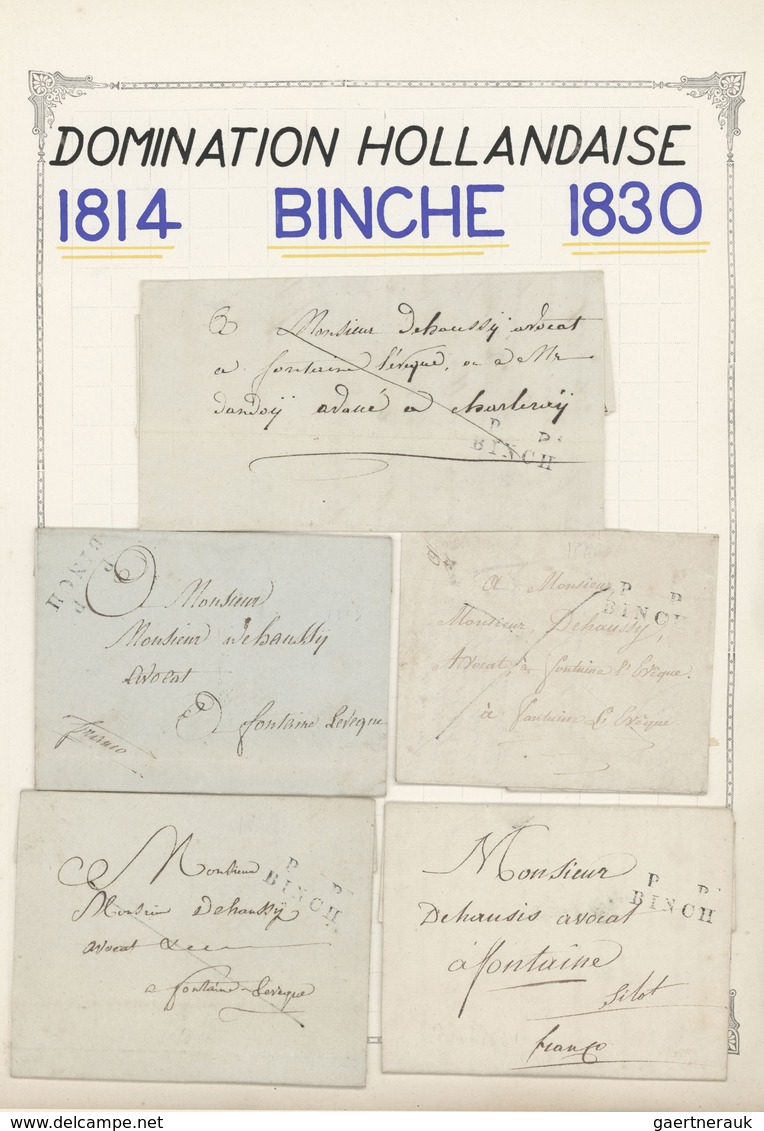 DOMINATION HOLLANDAISE
1814 BINCHE 1830
A Monsieur Dehaussÿ avocat
a fontaine l'évéque, ou a Mr
dandoÿ avoué a charleroÿ
P P.
BINCH
P P
BINCH
Monsieur
Monsieur Dehaussÿ
Avocat
a fontaine Leveque
franco
A Monsieur,
Monsieur Dehaussy,
Avocat, à fontaine l'Evêque.
à Fontaine L'Evêque
P P
BINCH
Monsieur
Monsieur Dehaussÿ
avocat
a fontaine-Leveque
P P.
BINCH
Monsieur
Dehausis avocat
à fontaine
P P.
BINCH
franco
www.delcampe.net
gaertnerauk